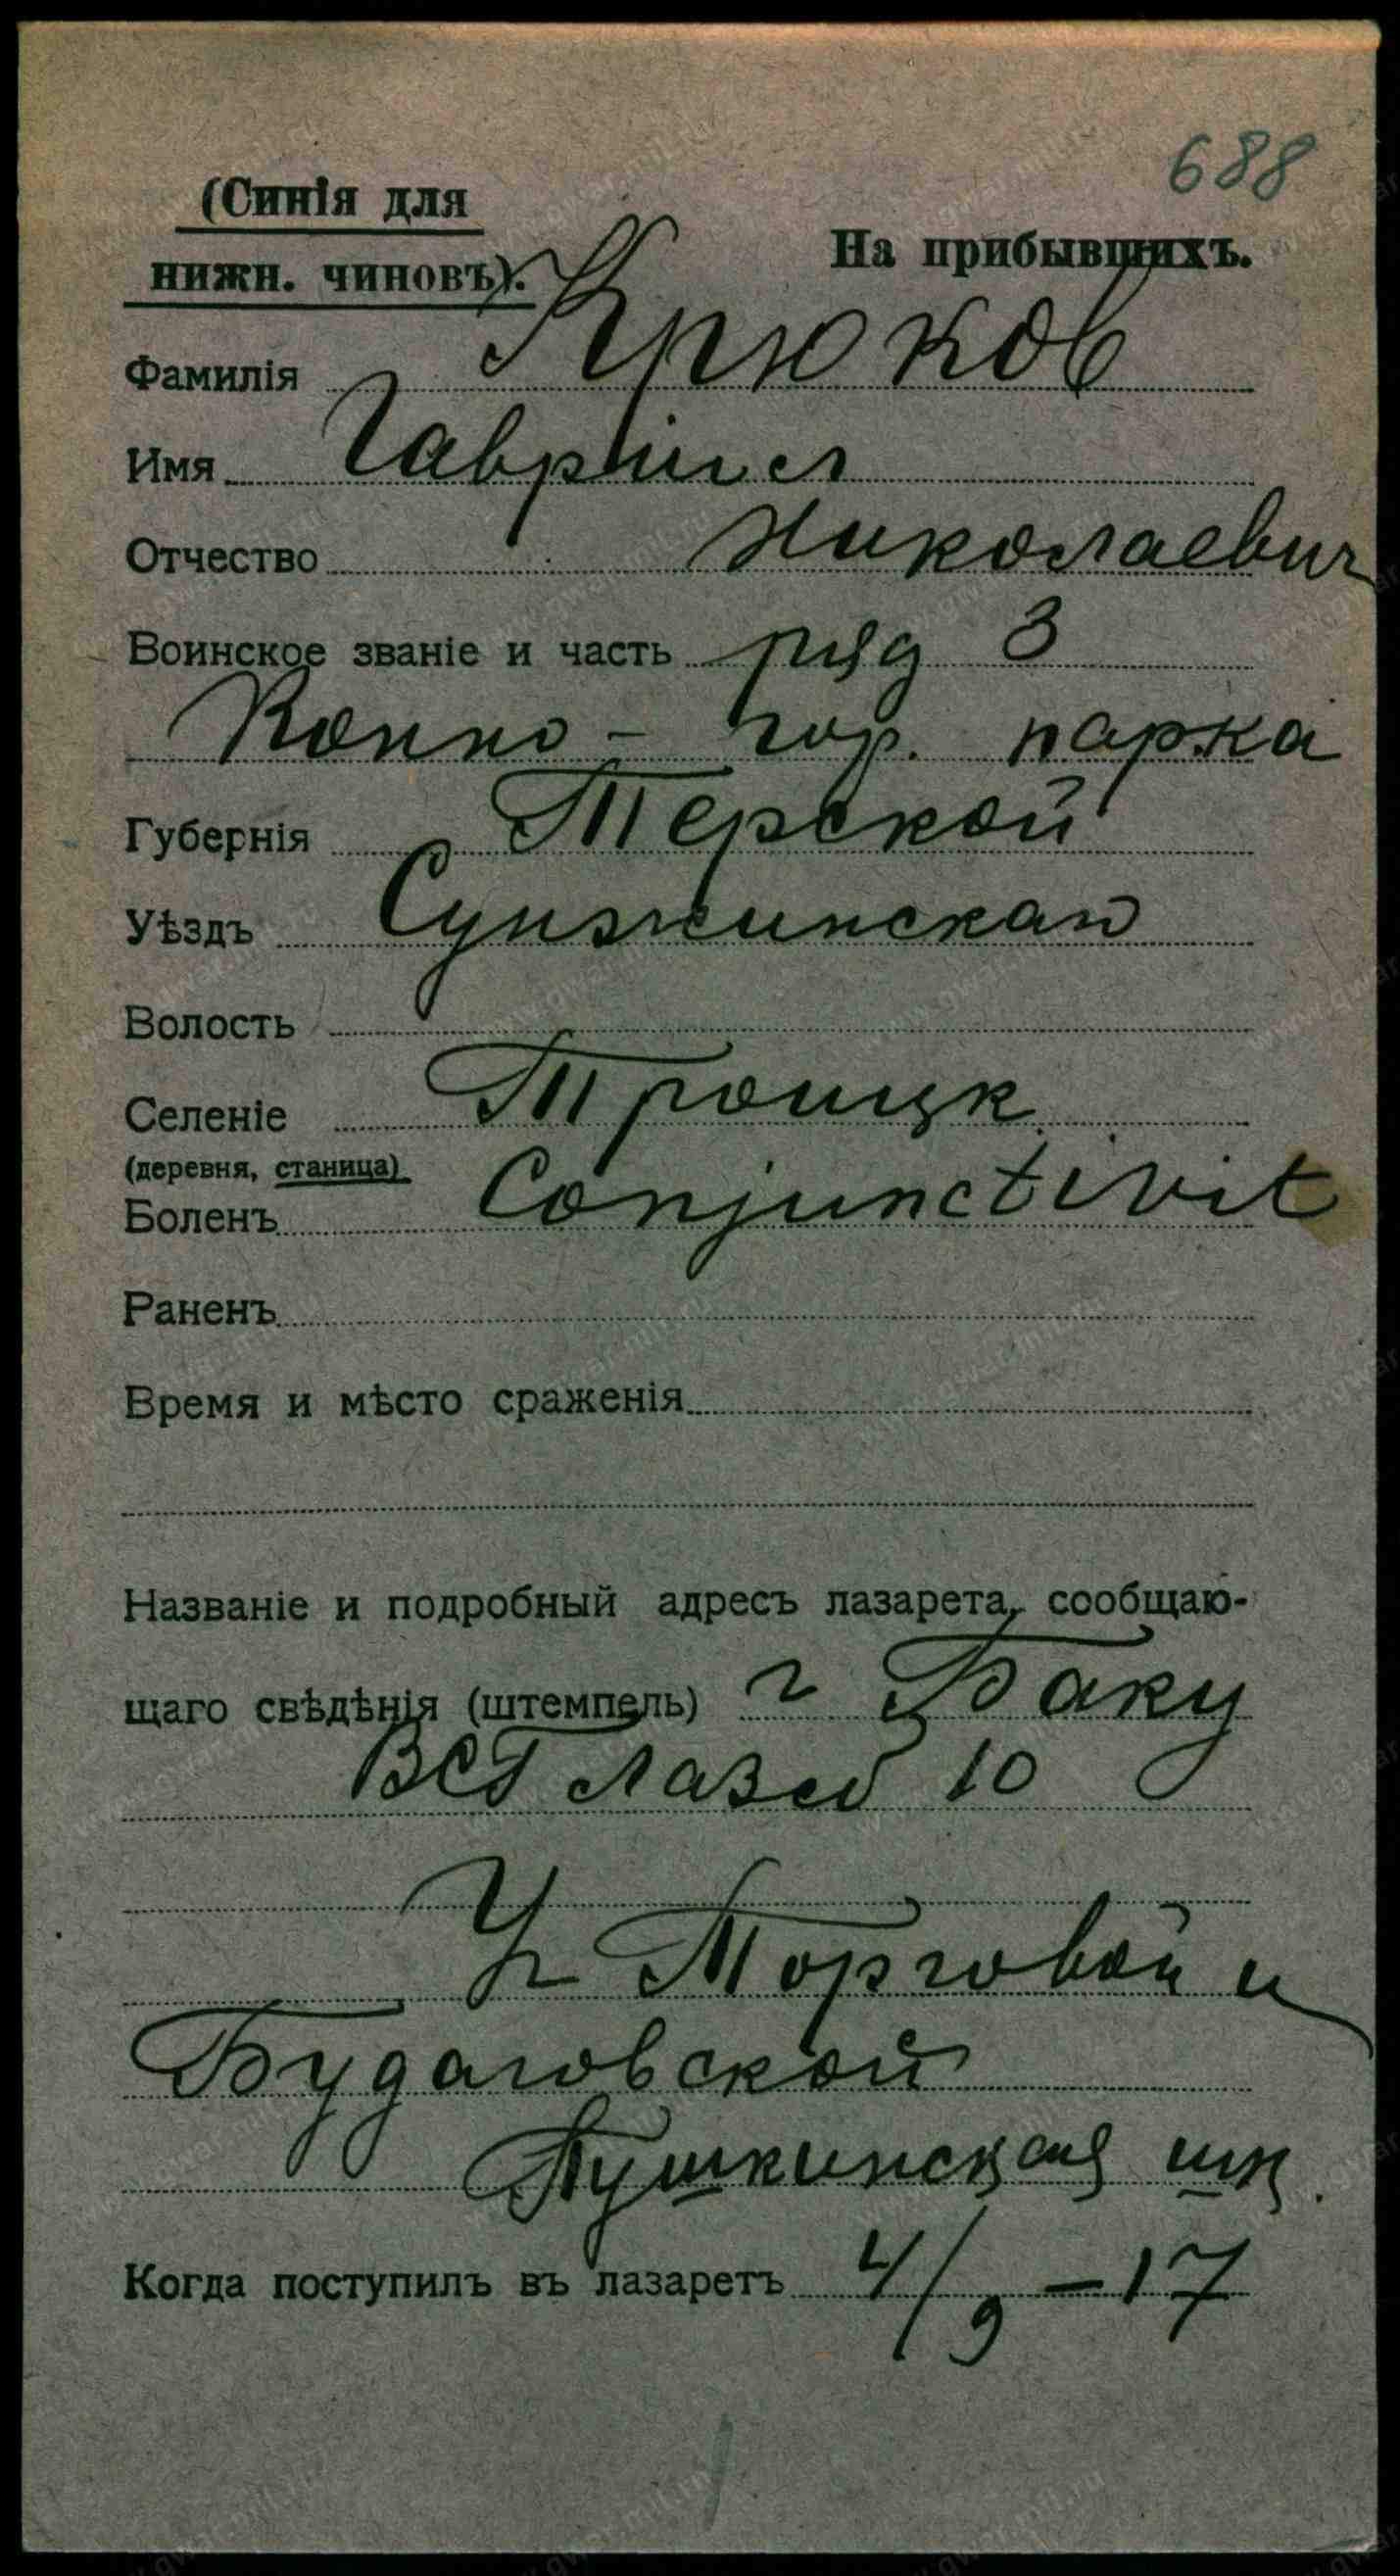 688
(Синія для
нижн. чиновъ).
На прибывшихъ.
Фамилія Крюков
Имя Гавріил
Отчество Николаевич
Воинское званіе и часть ряд 3
Конно - гор. парка
Губернія Терской
Уѣздъ Сунжинская
Волость
Селеніе Троицк.
(деревня, станица)
Боленъ Conjunctivit
Раненъ
Время и мѣсто сраженія
Названіе и подробный адресъ лазарета, сообщаю-
щаго свѣдѣнія (штемпель) г Баку
ВСГ лаз 10
Уг Торговой и
Будаговской
Пушкинская шк.
Когда поступилъ въ лазаретъ 4/9 - 17